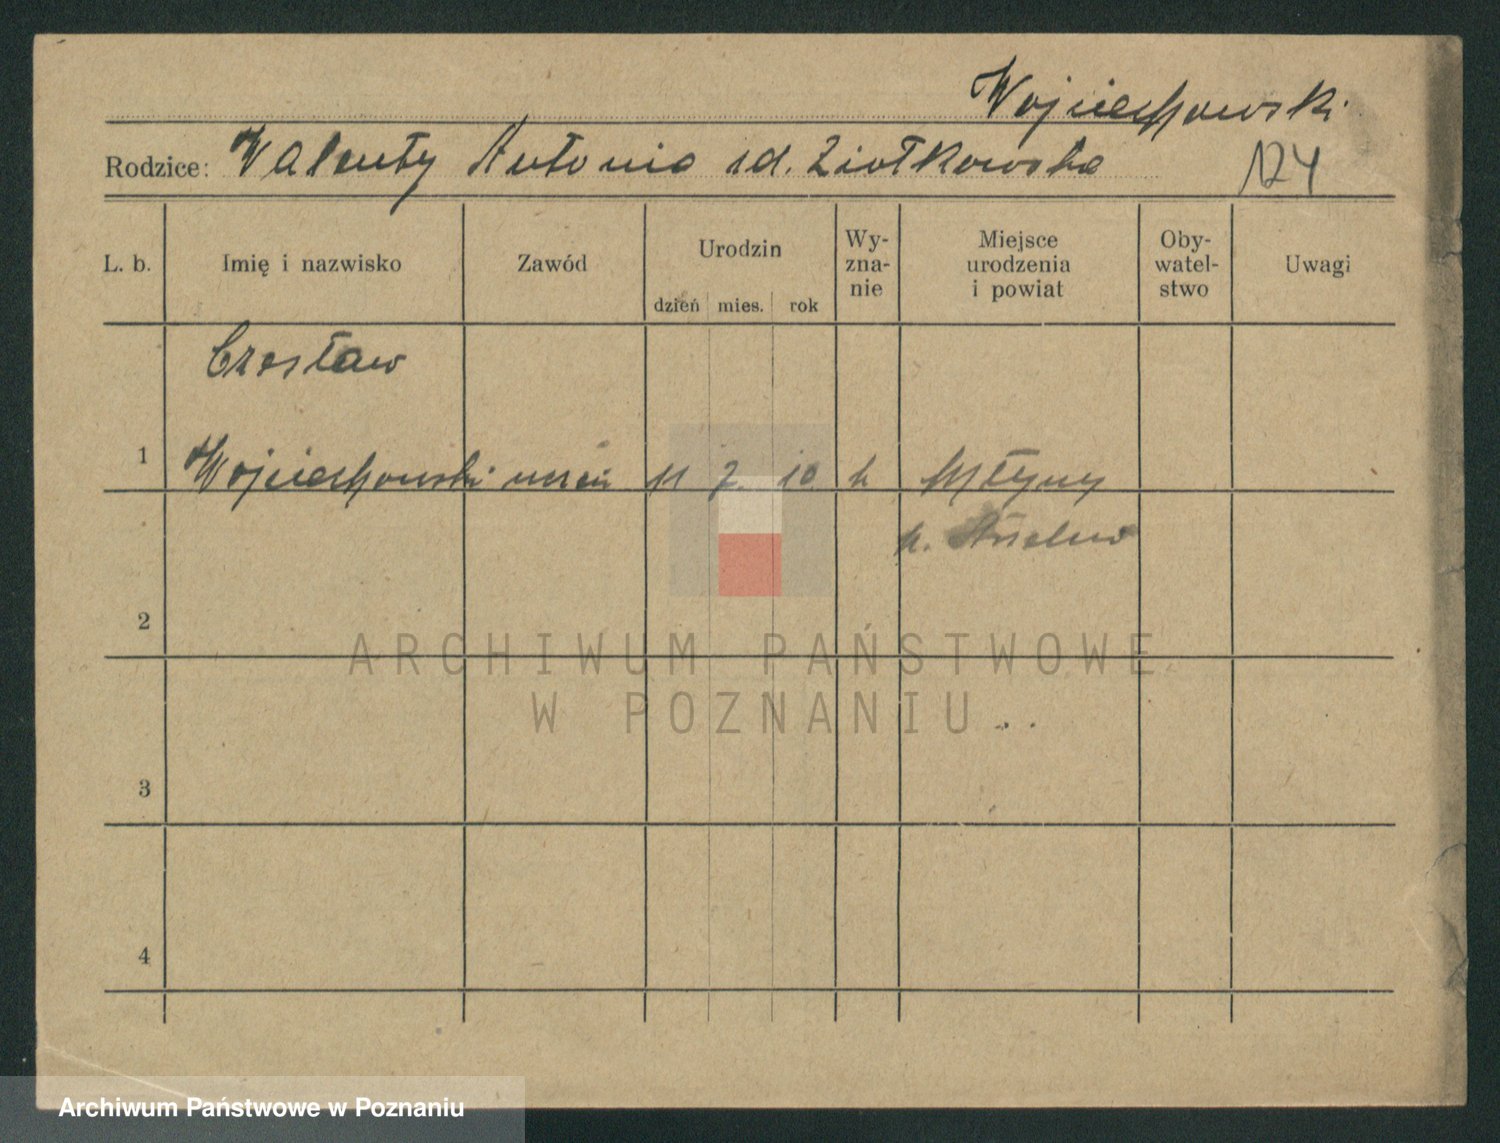 Wojciechowski
Rodzice: Walenty Antonia zd. Ziółkowska 124
L. b. Imię i nazwisko Zawód Urodzin dzień mies. rok Wy- zna- nie Miejsce urodzenia i powiat Oby- watel- stwo Uwagi
Czesław
1 Wojciechowski uczeń 11 7. 10 k Młyny
p. Strzelno
2
ARCHIWUM PAŃSTWOWE
W POZNANIU
3
4
Archiwum Państwowe w Poznaniu